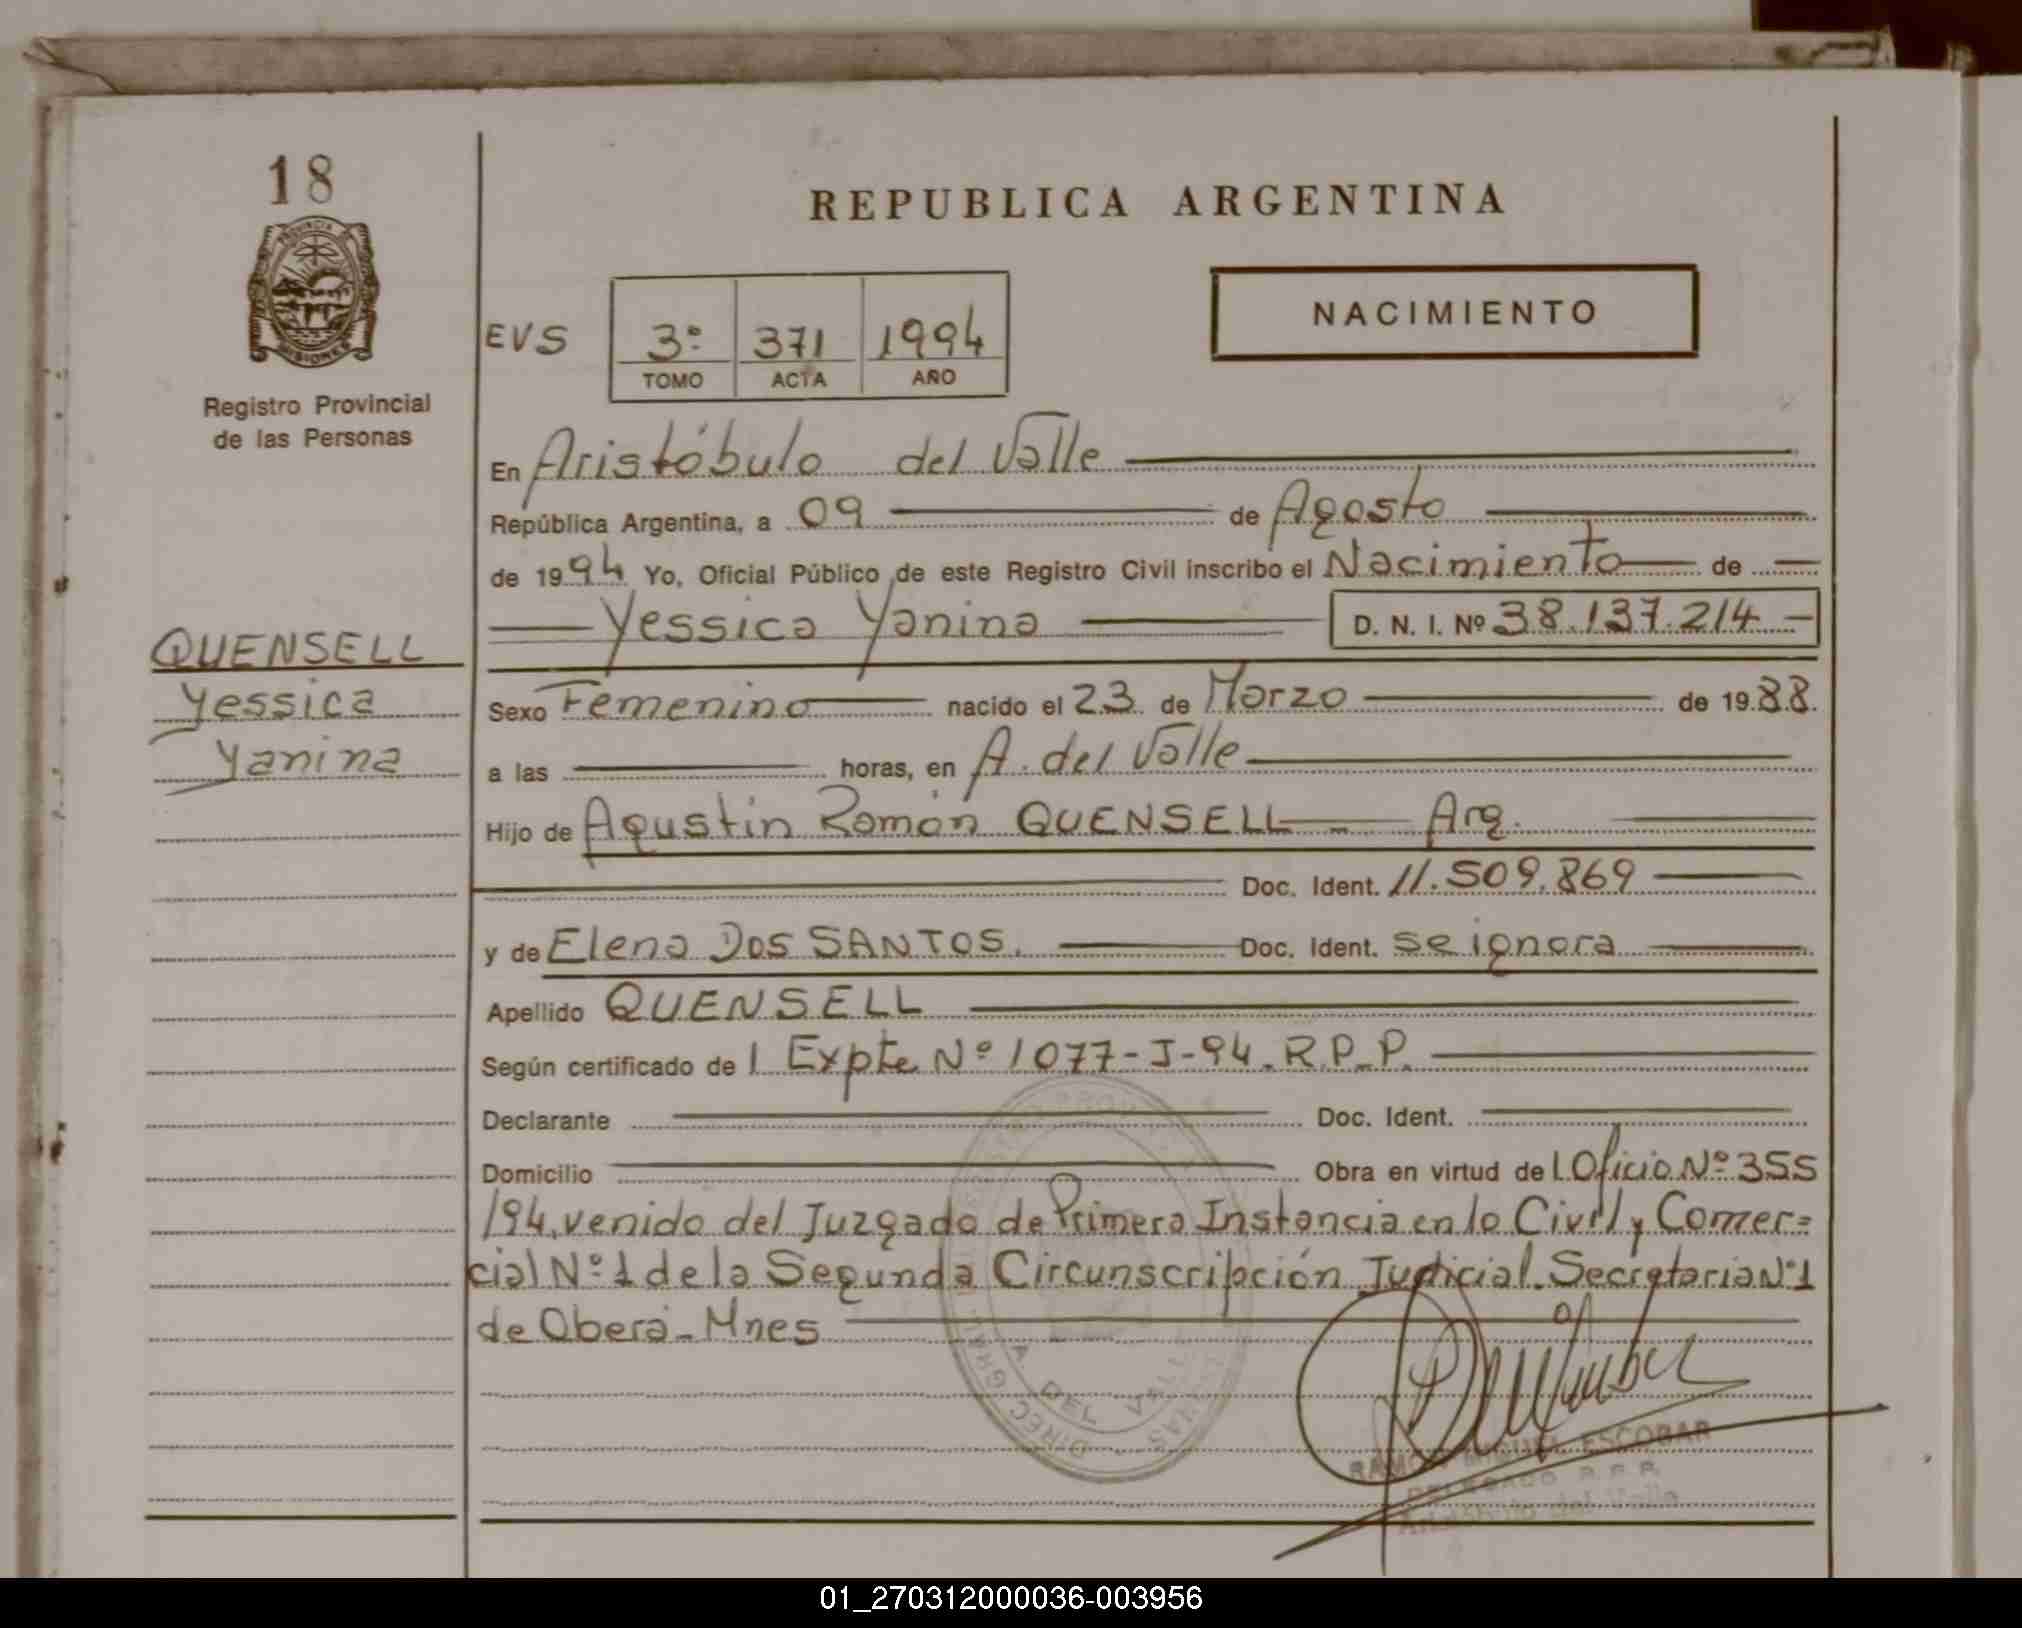 18
REPUBLICA ARGENTINA
PROVINCIA DE
MISIONES
NACIMIENTO
EVS 3º 371 1994
TOMO ACTA AÑO
Registro Provincial
de las Personas
En Aristóbulo del Valle
República Argentina, a 09 de Agosto
de 1994 Yo, Oficial Público de este Registro Civil inscribo el Nacimiento de
Yessica Yanina D. N. I. Nº 38.137.214
QUENSELL
Yessica
Yanina
Sexo Femenino nacido el 23 de Marzo de 1988.
a las horas, en A. del Valle
Hijo de Agustín Ramón QUENSELL Arg.
Doc. Ident. 11.509.869
y de Elena DOS SANTOS. Doc. Ident. se ignora
Apellido QUENSELL
Según certificado de l Expte Nº 1077-J-94. R.P.P.
Declarante Doc. Ident.
Domicilio Obra en virtud de l Oficio Nº 355
/94, venido del Juzgado de Primera Instancia en lo Civil y Comer=
cial Nº 1 de la Segunda Circunscripción Judicial. Secretaria Nº 1
de Oberá - Mnes
A. DEL VALLE
DIREC. GRAL.
RAMON MIGUEL ESCOBAR
DELEGADO R.P.P.
Aristóbulo del Valle
01_270312000036-003956